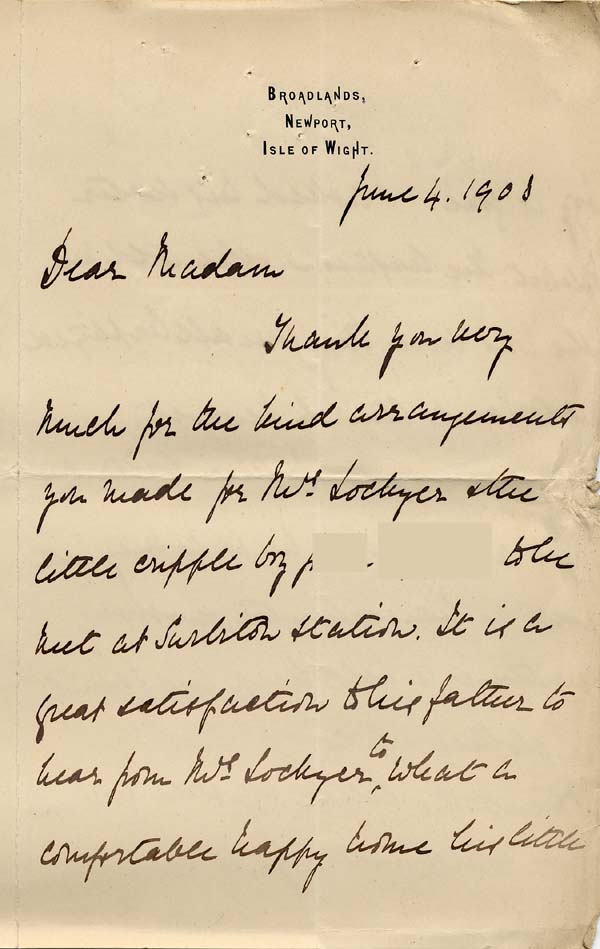 BROADLANDS,
NEWPORT,
ISLE OF WIGHT.
June 4. 1908
Dear Madam
Thank you very
much for the kind arrangements
you made for Mrs Lockyer & the
little cripple boy to be
met at Surbiton station. It is a
great satisfaction to his father to
hear from Mrs Lockyer to what a
comfortable happy home his little